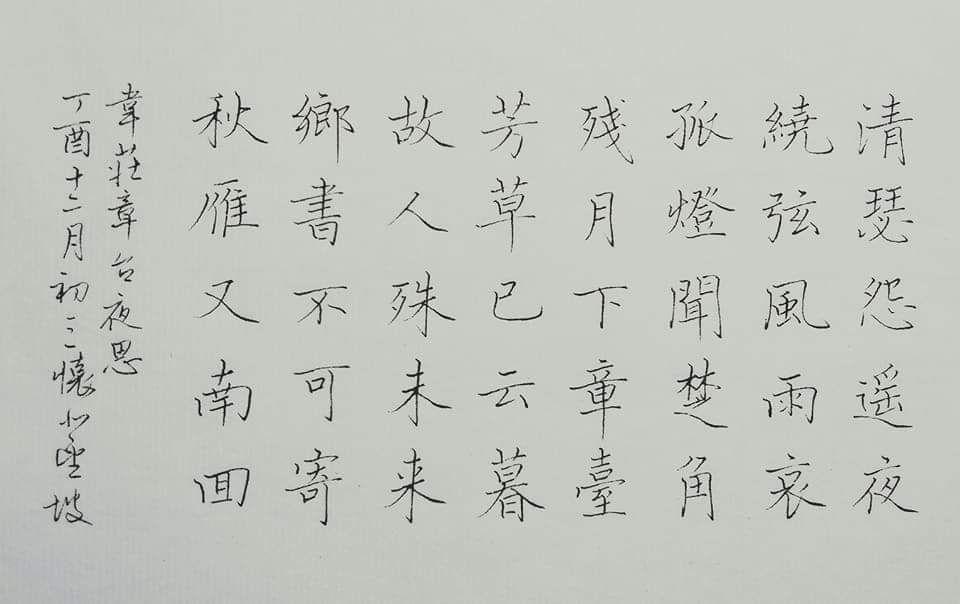 清瑟怨遥夜
繞弦風雨哀
孤燈聞楚角
残月下章臺
芳草已云暮
故人殊未来
鄉書不可寄
秋雁又南回
韋莊章台夜思
丁酉十二月初三懐